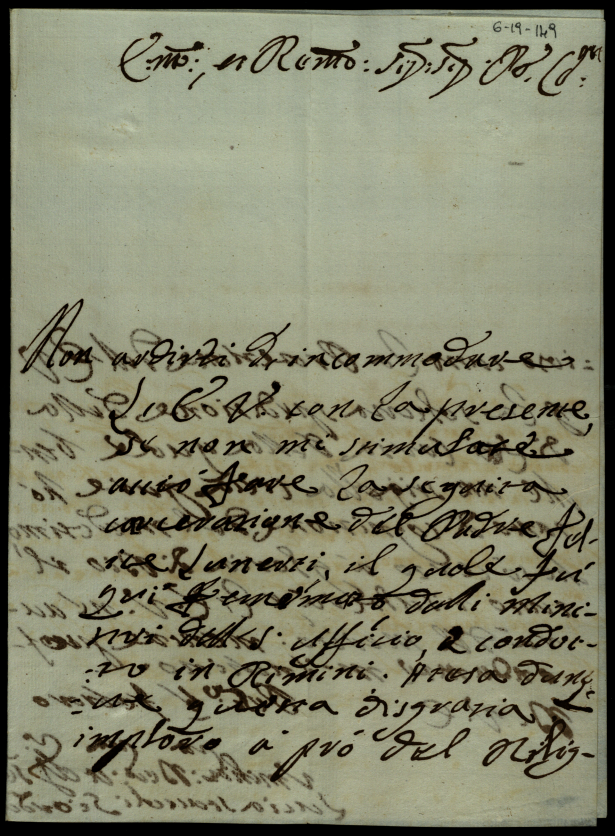 6-19-149
Em̃o:, e Reṽmo: Sig: Sig: P͠ro. Col̃mo:
Non ardirei d'incommodare
L'E V con la presente,
se non mi stimolasse
acciò fare la seguita
carcerazione del Padre Fel-
ice, il quale fù
qui dalli Mini-
stri del S. Ufficio, e condot-
to in Rimini. Atesa dunq-
ue questa disgrazia
imploro à prò del Relig-